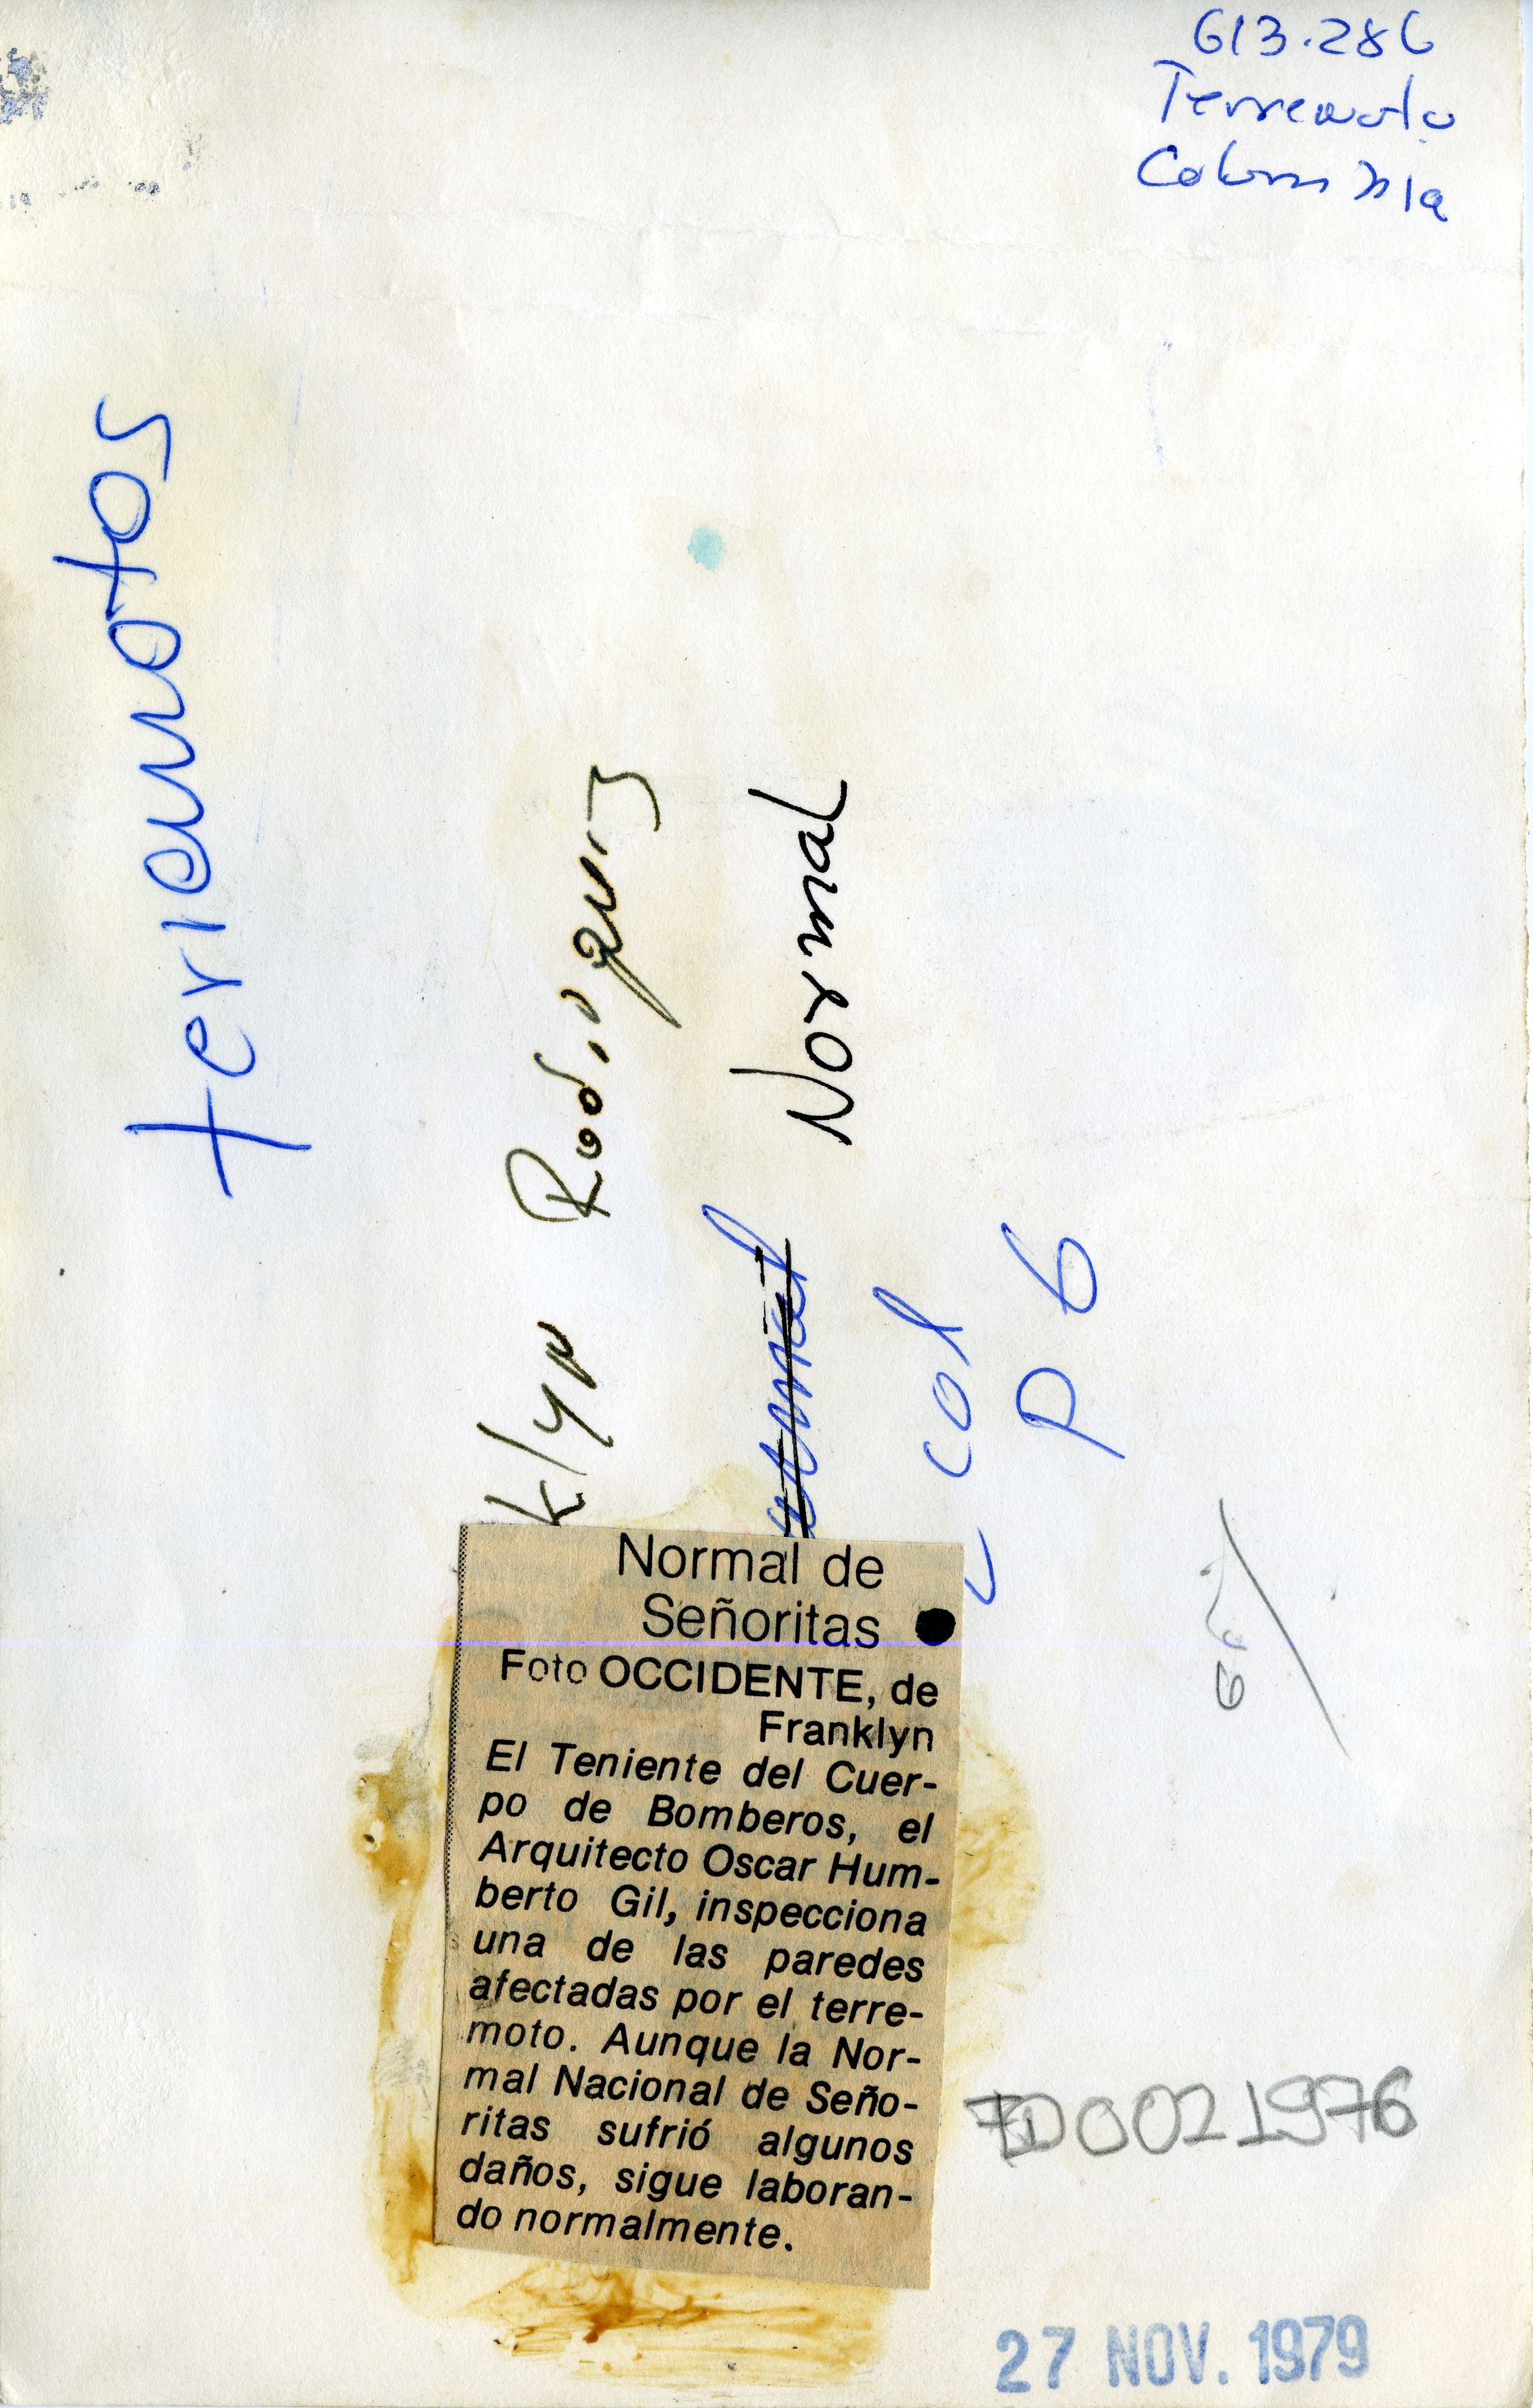 613.286
Terremoto
Colombia
terremotos
klyn Rodriguez
Normal
col
p 6
Normal de
Señoritas
Foto OCCIDENTE, de
Franklyn
El Teniente del Cuer-
po de Bomberos, el
Arquitecto Oscar Hum-
berto Gil, inspecciona
una de las paredes
afectadas por el terre-
moto. Aunque la Nor-
mal Nacional de Seño-
ritas sufrió algunos
daños, sigue laboran-
do normalmente.
0021976
27 NOV. 1979